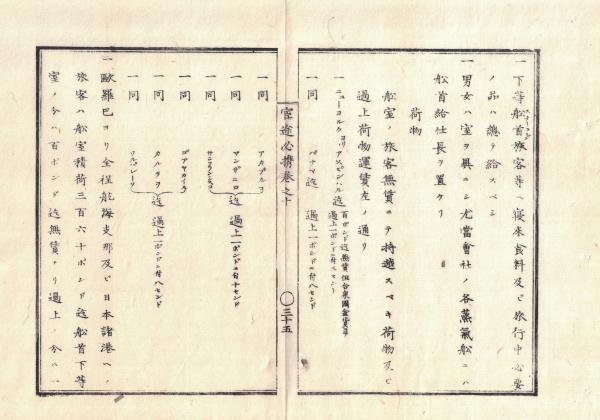 一 下等船首旅客等ハ寝床食料及ビ旅行中必要
ノ品ハ總テ給スベシ
一 男女ハ室ヲ異ニシ尤當會社ノ各蒸氣船ニハ
船首給仕長ヲ置ケリ
荷物
船室ノ旅客無賃ニテ持越スベキ荷物及ビ
過上荷物運賃左ノ通リ
一 ニューヨルクヨリアスピンハル迄
百ポンド迄無賃
過上一ポンドニ付
一 同 パナマ迄 過上一ポンドニ付八センド
一 同 アカプルコ
一 同 マンザニロ 迄 過上一ポンドニ付十センド
一 同
一 同
一 同 カルラヲ 迄 過上一ポンドニ付八センド
一 同
官途必携巻之十
〇三十五
一 歐羅巴ヨリ全程航海支那及ビ日本諸港ヘノ
旅客ハ船室積荷三百六十ポンド迄船首下等
室ノ分ハ百ポンド迄無賃ナリ過上ノ分ハ一